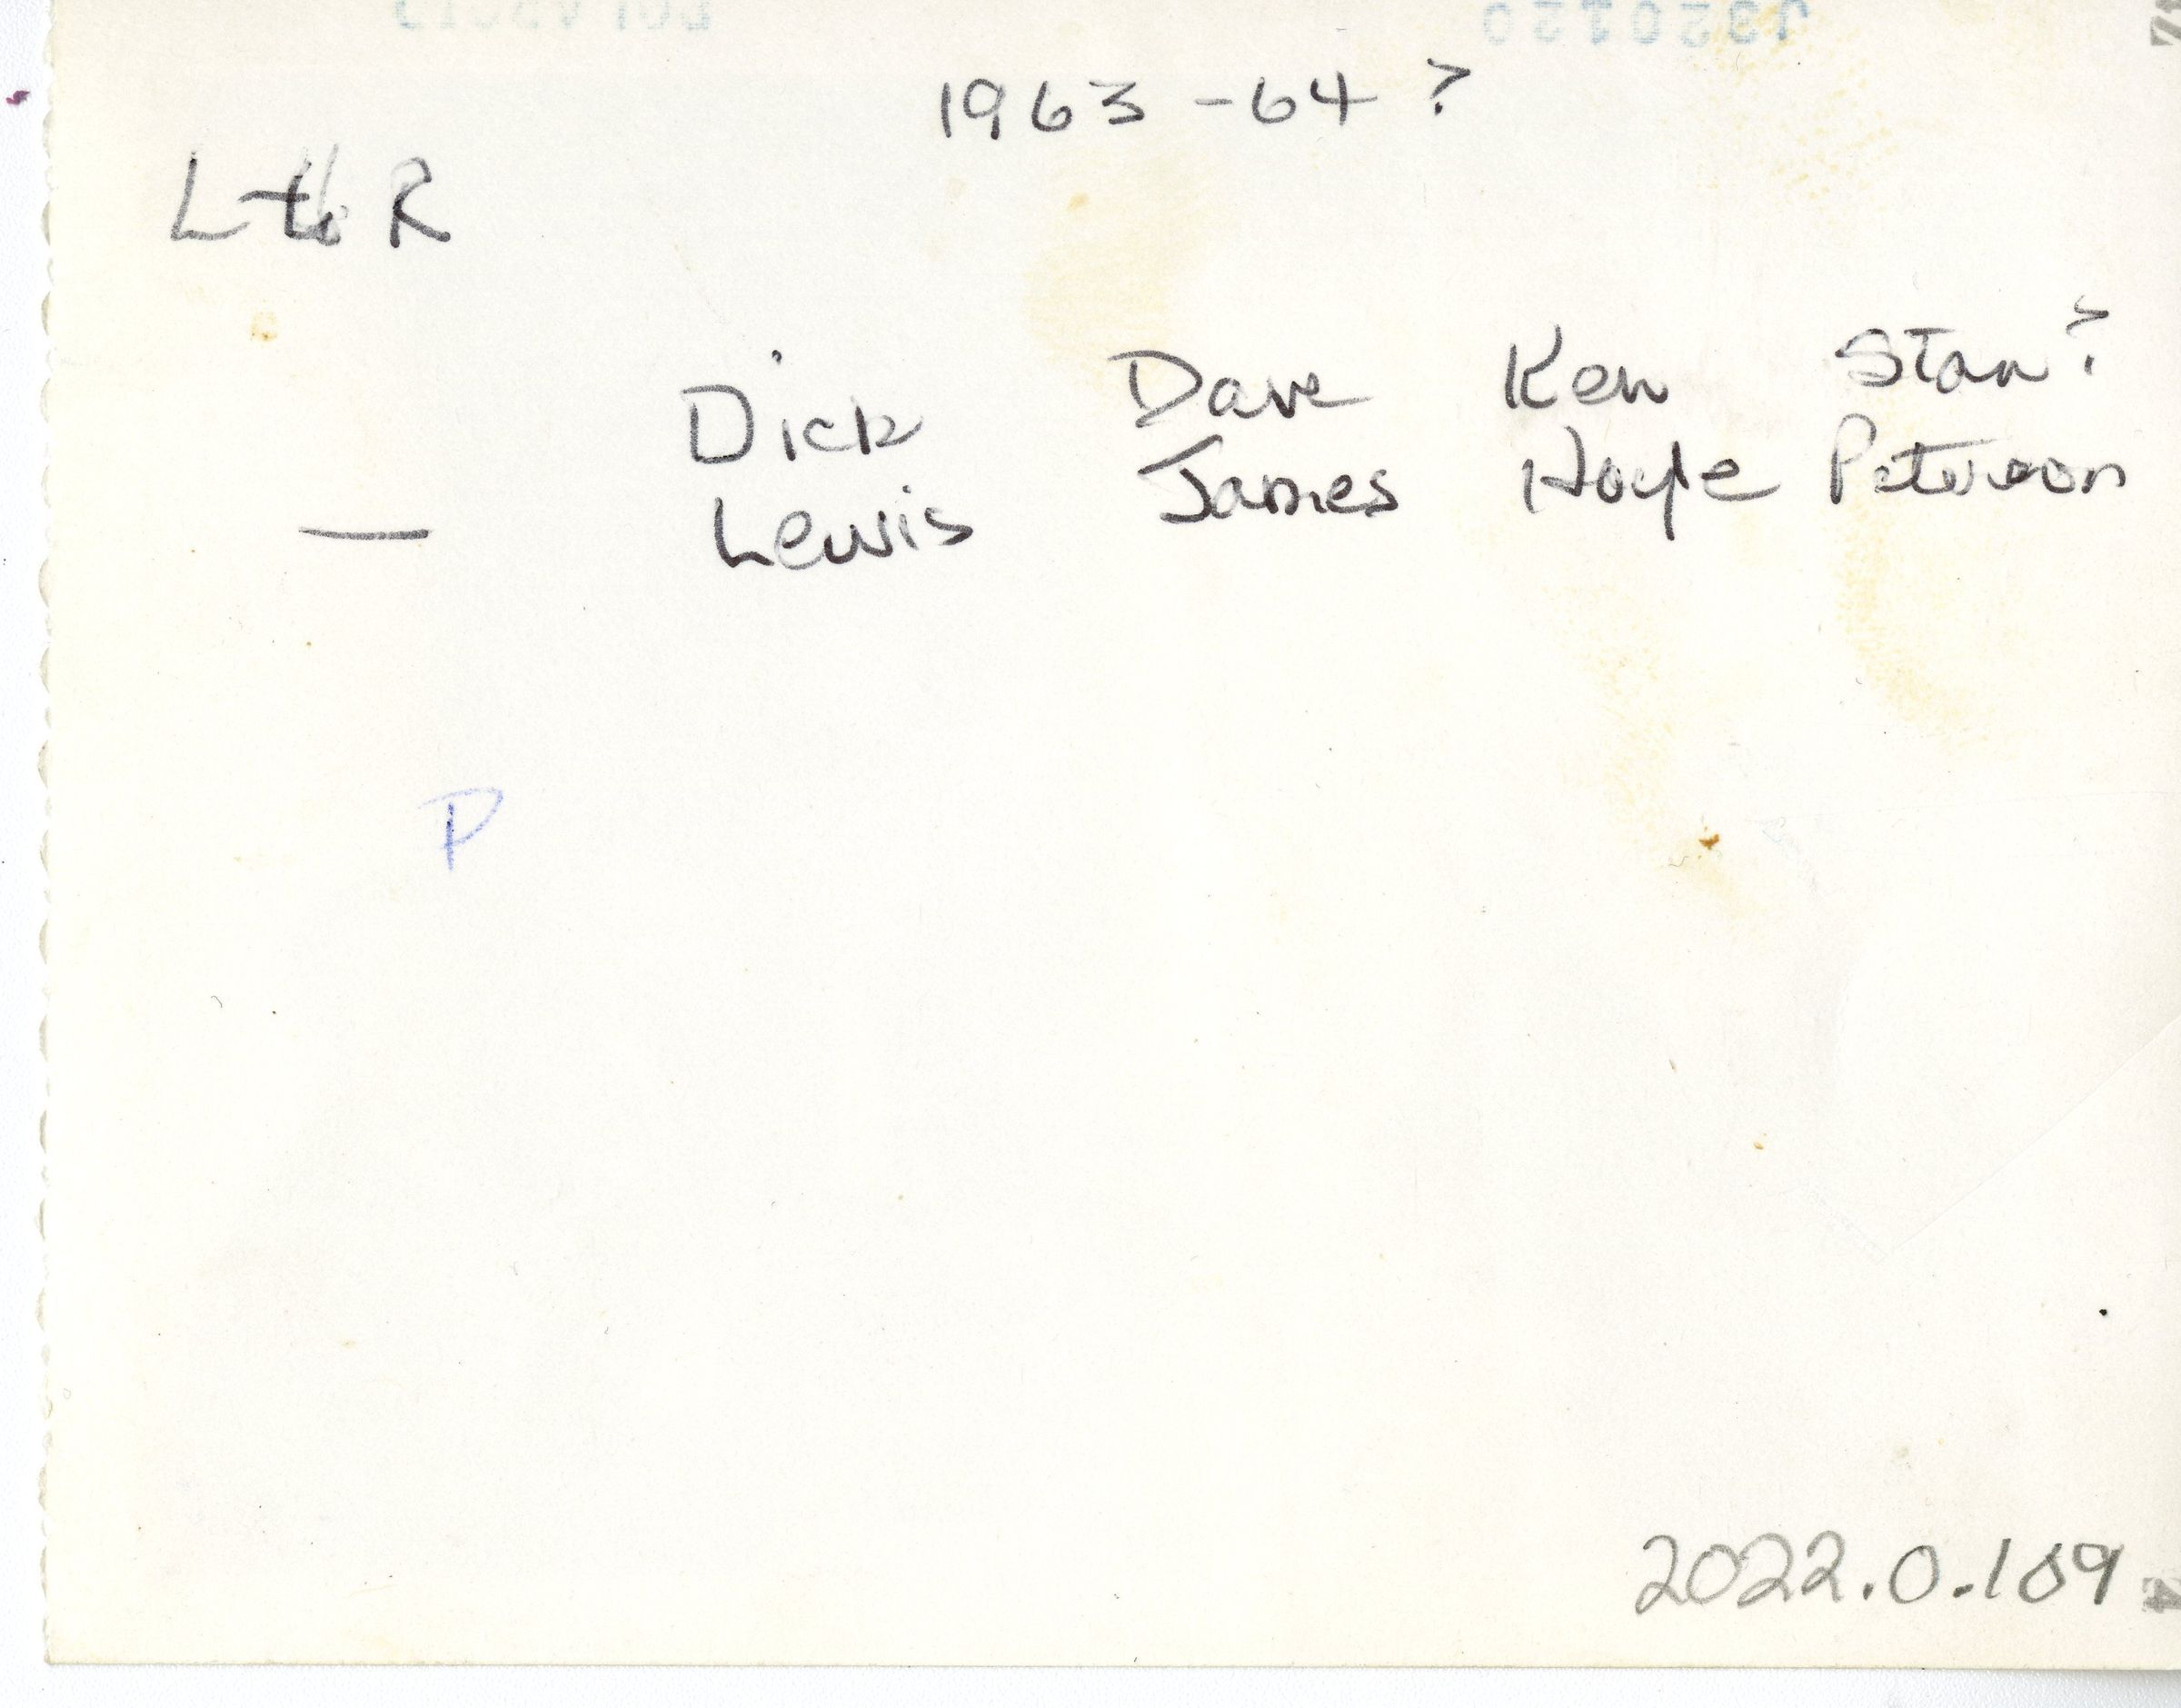 POLAROID
J320120
1963-64?
L to R
Dick Dave Ken Stan?
— Lewis James Hoyle Peterson
P
2022.0.109